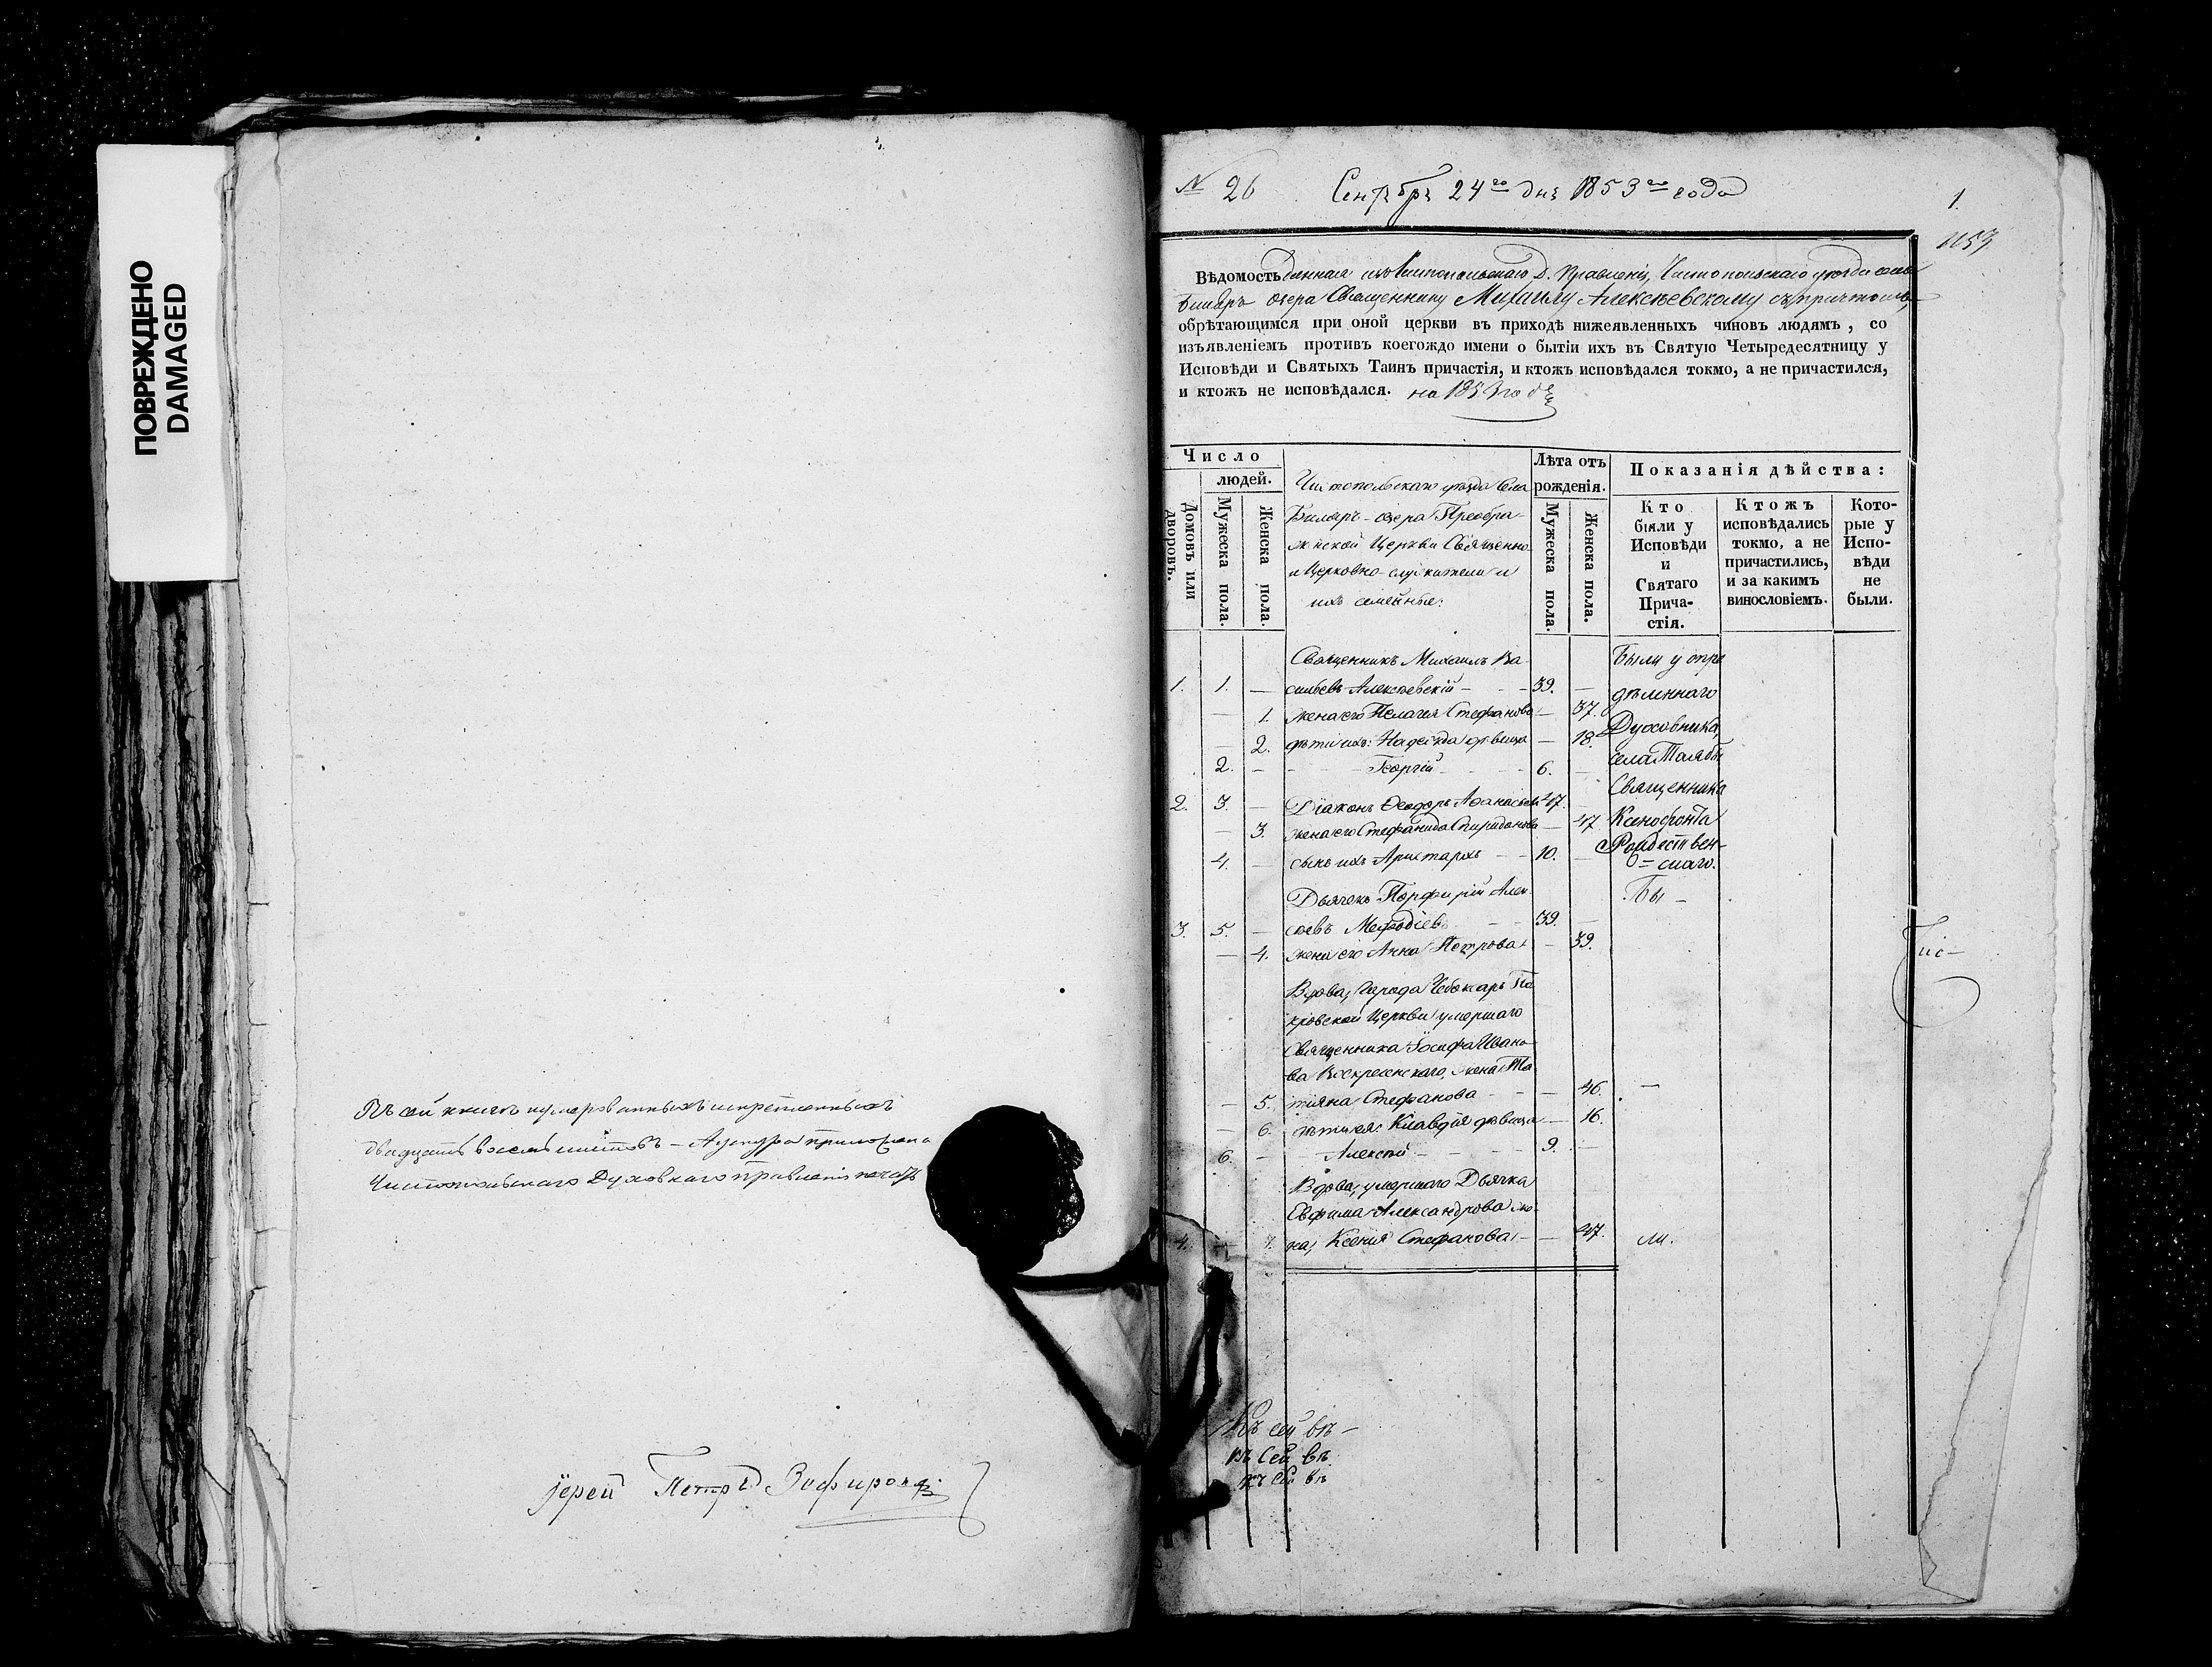 ПОВРЕЖДЕНО
DAMAGED
Въ сей книгѣ нумерованныхъ и скрѣпленныхъ
двадцать восемь листовъ – А у шнура приложена
Чистопольскаго Духовнаго Правленія печать
Іерей Петръ Зефировъ
№ 26 Сентября 24го дня 1853го года
1.
1153
Вѣдомость данная изъ Чистопольскаго Д. Правленія, Чистопольскаго уѣзда села
Биляръ озера Священнику Михаилу Алексѣевскому съ причтомъ,
обрѣтающимся при оной церкви въ приходѣ нижеявленныхъ чиновъ людямъ, со
изъявленіемъ противъ коегождо имени о бытіи ихъ въ Святую Четыредесятницу у
Исповѣди и Святыхъ Таинъ причастія, и ктожъ исповѣдался токмо, а не причастился,
и ктожъ не исповѣдался. на 1853 годъ
Число
людей.
Домовъ или дворовъ.
Мужеска пола.
Женска пола.
Чистопольскаго уѣзда Села
Биляръ-озера Преобра-
женской Церкви Священно-
и Церковно-служители и
ихъ семейные:
Лѣта отъ
рожденія.
Мужеска пола.
Женска пола.
Показанія дѣйства:
Кто
были у
Исповѣди
и
Святаго
Прича-
стія.
Ктожъ
исповѣдались
токмо, а не
причастились,
и за какимъ
винословіемъ.
Кото-
рые у
Испо-
вѣди
не
были.
Священникъ Михаилъ Ва- Были у опре
1. 1. — сильевъ Алексѣевскій — 39. — дѣленнаго
— 1. жена его Пелагія Стефанова — 37. Духовника,
— 2. дѣти ихъ: Надежда дѣвица — 18. села
2. — Георгій — 6. — Священника
2. 3. — Діаконъ Ѳеодоръ Аѳанасьевъ 47. — Ксенофонта
— 3. жена его Стефанида Спиридонова — 47. Рождествен-
4. — сынъ ихъ Аристархъ — 10. — скаго.
Дьячекъ Порфирій Алек- Бы —
3. 5. — сѣевъ Меѳодіевъ — 39. —
— 4. жена его Анна Петрова — 39.
Вдова, Города Чебоксаръ По-
кровской Церкви умершаго
Священника Іосифа Ивано-
ва Воскресенскаго, жена Та-
— 5. тіяна Стефанова — 46. —
— 6. дѣти ея: Клавдія дѣвица — 16.
6. — Алексѣй — 9. —
Вдова, умершаго Дьячка
Евфима Александрова же-
4. — 7. на, Ксенія Стефанова — 47. ли.
Къ сей вѣ-
Къ сей вѣ
Къ сей вѣ